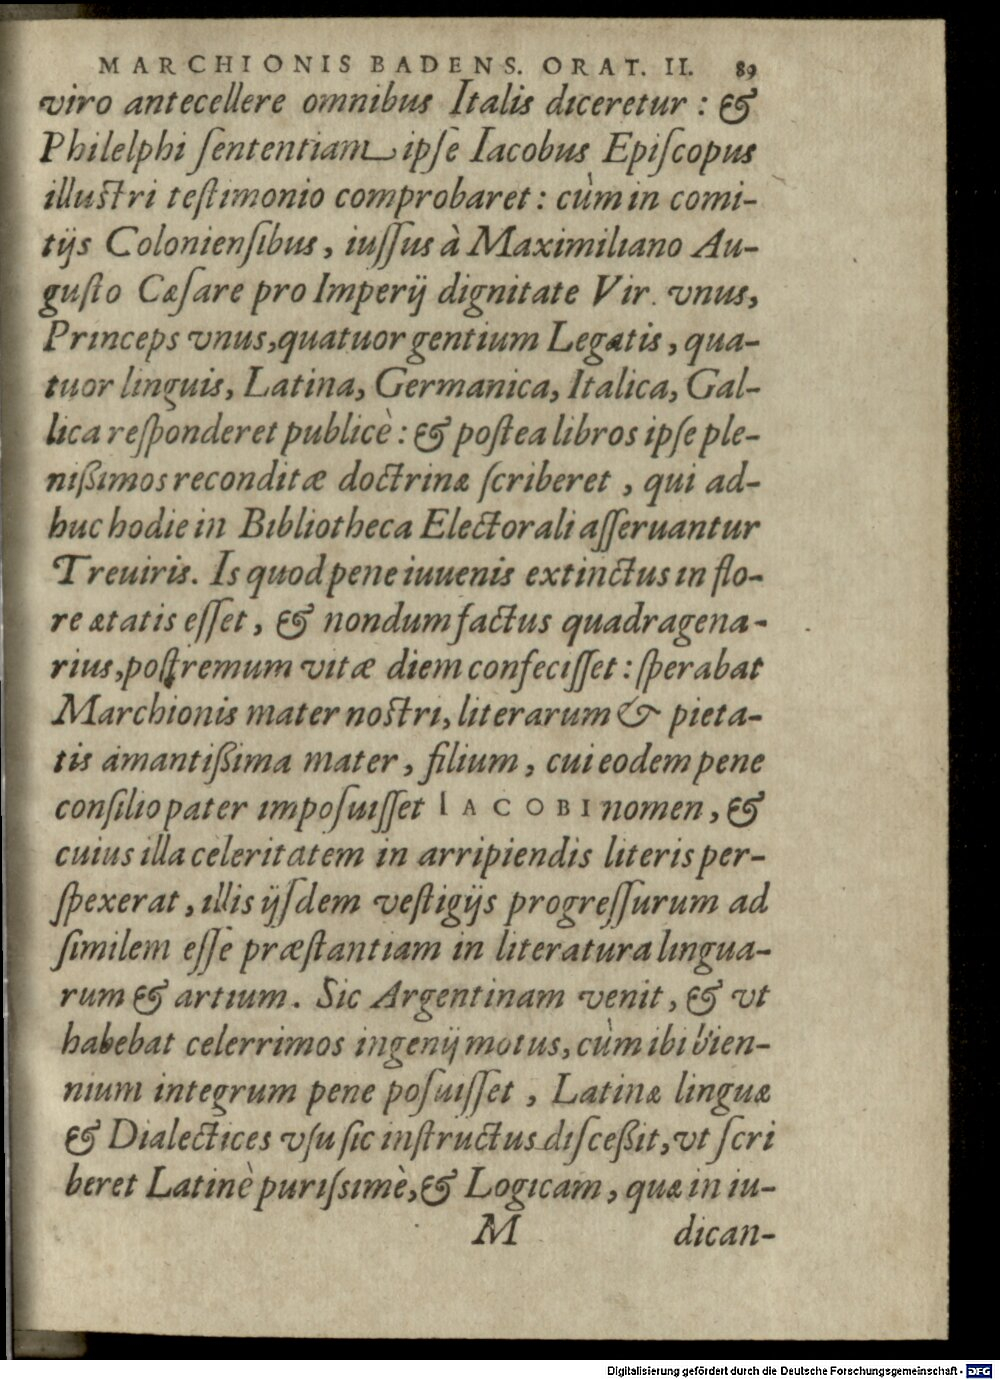 MARCHIONIS BADENS. ORAT. II. 89
viro antecellere omnibus Italis diceretur : &
Philelphi ſententiam ipſe Iacobus Epiſcopus
illuſtri teſtimonio comprobaret : cùm in comi-
tijs Colonienſibus, iuſſus à Maximiliano Au-
guſto Cæſare pro Imperij dignitate Vir. vnus,
Princeps vnus, quatuor gentium Legatis, qua-
tuor linguis, Latina, Germanica, Italica, Gal-
lica reſponderet publicè : & poſtea libros ipſe ple-
nißimos reconditæ doctrinæ ſcriberet, qui ad-
huc hodie in Bibliotheca Electorali aſſeruantur
Treuiris. Is quod pene iuuenis extinctus in flo-
re ætatis eſſet, & nondum factus quadragena-
rius, poſtremum vitæ diem confeciſſet : ſperabat
Marchionis mater noſtri, literarum & pieta-
tis amantißima mater, filium, cui eodem pene
conſilio pater impoſuiſſet IACOBI nomen, &
cuius illa celeritatem in arripiendis literis per-
ſpexerat, illis ijſdem veſtigijs progreſſurum ad
ſimilem eſſe præſtantiam in literatura lingua-
rum & artium. Sic Argentinam venit, & vt
habebat celerrimos ingenij motus, cùm ibi bien-
nium integrum pene poſuiſſet, Latinæ linguæ
& Dialectices vſu ſic inſtructus diſceßit, vt ſcri
beret Latinè puriſsimè, & Logicam, quæ in iu-
M dican-
Digitalisierung gefördert durch die Deutsche Forschungsgemeinschaft - DFG